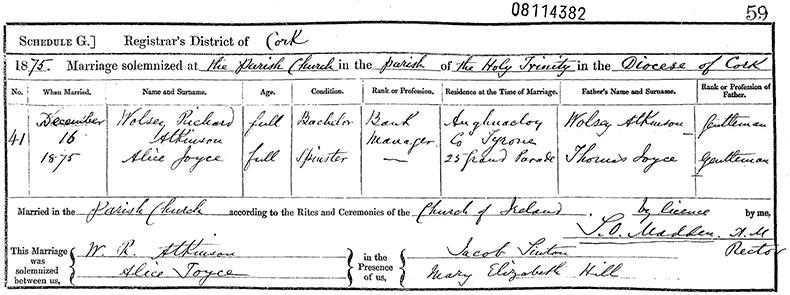 08114382 59
SCHEDULE G.] Registrar's District of Cork
1875. Marriage solemnized at the Parish Church in the parish of the Holy Trinity in the Diocese of Cork
No. When Married. Name and Surname. Age. Condition. Rank or Profession. Residence at the Time of Marriage. Father's Name and Surname. Rank or Profession of Father.
December Wolsey Richard full Bachelor Bank Aughnacloy Wolsey Atkinson Gentleman
41 16 Atkinson Manager Co Tyrone
1875 Alice Joyce full Spinster — 25 Grand Parade Thomas Joyce Gentleman
Married in the Parish Church according to the Rites and Ceremonies of the Church of Ireland, by licence by me,
S.O. Madden. A.M
Rector
This Marriage was solemnized between us, W. R. Atkinson in the Presence of us, Jacob
Alice Joyce Mary Elizabeth Hill